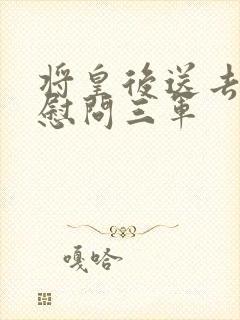 将皇後送去
慰問三軍
嘎哈